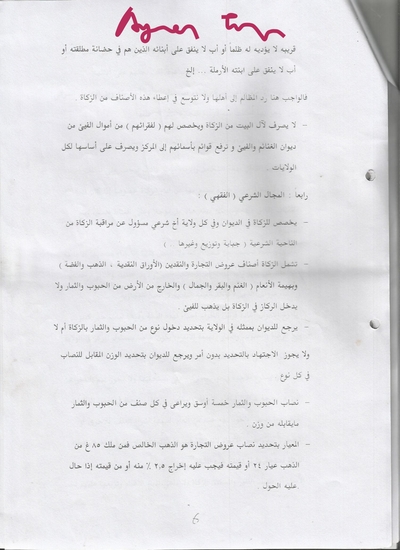 قريبه لا يؤديه له ظلماً أو أب لا ينفق على أبنائه الذين هم في حضانة مطلقته أو
أب لا ينفق على ابنته الأرملة ... إلخ
فالواجب هنا رد المظالم إلى أهلها ولا نتوسع في إعطاء هذه الأصناف من الزكاة .
– لا يصرف لآل البيت من الزكاة ويخصص لهم ( لفقرائهم ) من أموال الفيئ من
ديوان الغنائم والفيئ و ترفع قوائم بأسمائهم إلى المركز ويصرف على أساسها لكل
الولايات .
رابعا : المجال الشرعي ( الفقهي ) :
– يخصص للزكاة في الديوان وفي كل ولاية أخ شرعي مسؤول عن مراقبة الزكاة من
الناحية الشرعية ( جباية وتوزيع وغيرها . )
– تشمل الزكاة أصناف عروض التجارة والنقدين (الأوراق النقدية ، الذهب والفضة )
وبهيمة الأنعام ( الغنم والبقر والجمال ) والخارج من الأرض من الحبوب والثمار ولا
يدخل الركاز في الزكاة بل يذهب للفيئ .
– يرجع للديوان بممثله في الولاية بتحديد دخول نوع من الحبوب والثمار بالزكاة أم لا
ولا يجوز الاجتهاد بالتحديد بدون أمر ويرجع للديوان بتحديد الوزن المقابل للنصاب
في كل نوع
– نصاب الحبوب والثمار خمسة أوسق ويراعى في كل صنف من الحبوب والثمار
مايقابله من وزن .
– المعيار بتحديد نصاب عروض التجارة هو الذهب الخالص فمن ملك ٨٥ غ من
الذهب عيار ٢٤ أو قيمته فيجب عليه إخراج ٢.٥ ٪ منه أو من قيمته إذا حال
عليه الحول .
6